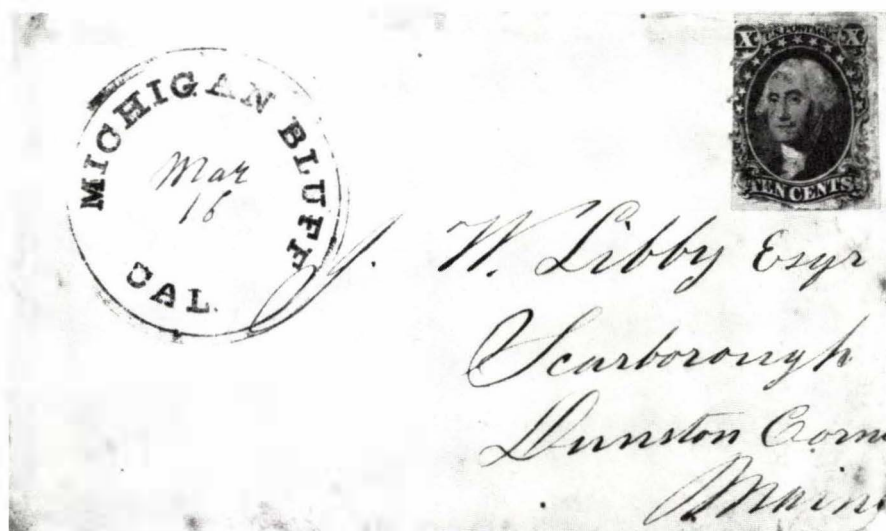 MICHIGAN BLUFF
CAL.
Mar
16
X U.S. POSTAGE X
TEN CENTS
J. W. Libby Esqr
Scarborough
Dunston Corn
Maine